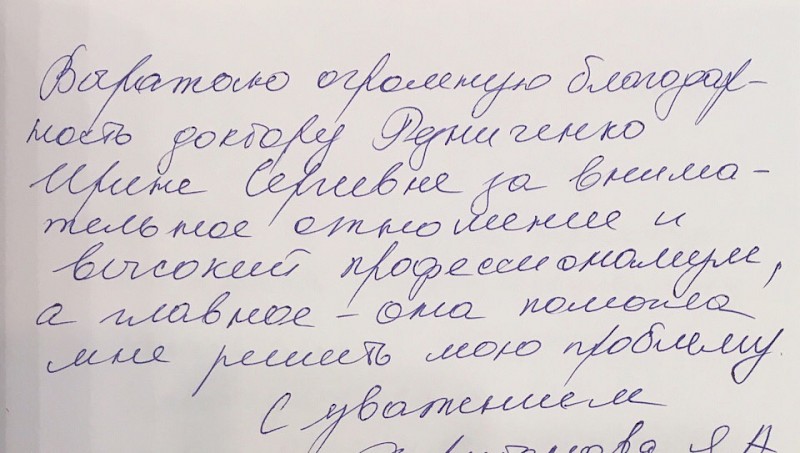 Выражаю огромную благодар-
ность доктору Редниченко
Ирине Сергеевне за внима-
тельное отношение и
высокий профессионализм,
а главное – она помогла
мне решить мою проблему.
С уважением
Я А